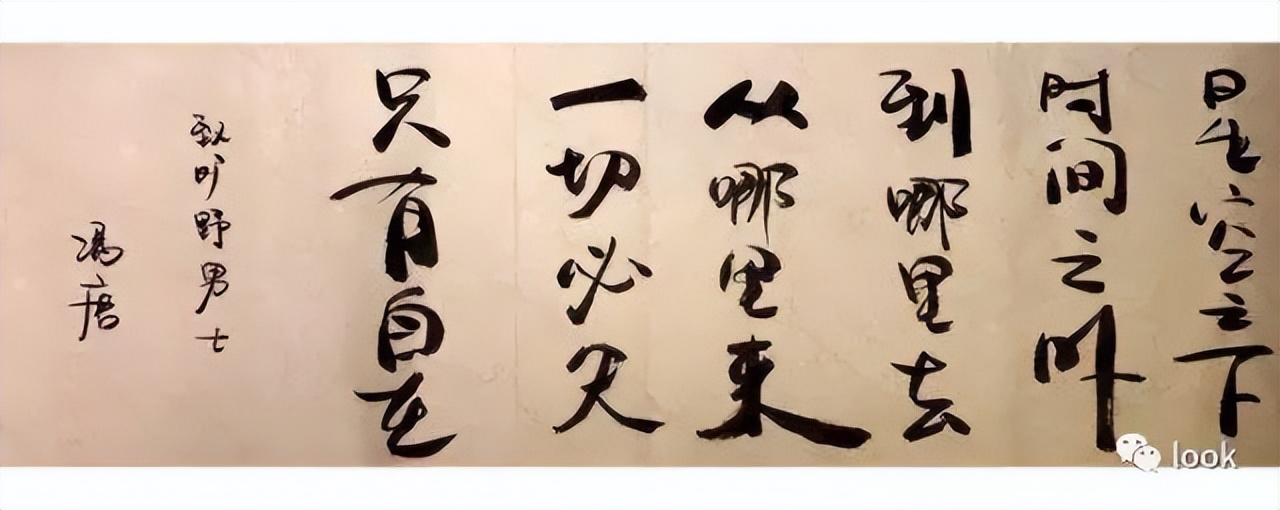 星空之下
时间之外
到哪里去
从哪里来
一切必
只有自在
致旷野男士
冯唐
look